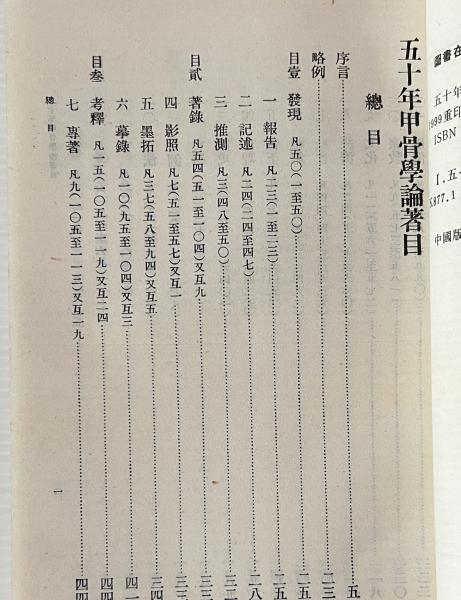 圖書在
五十年
1999重印
ISBN
Ⅰ.五
K877.1
中國版
五十年甲骨學論著目
總目
序言……五
略例……二三
目壹 發現 凡五〇(一至五〇)……二五
一 報告 凡二三(一至二三)……二五
二 記述 凡二四(二四至四七)……二八
三 推測 凡三(四八至五〇)……三二
目貳 著錄 凡五四(五一至一〇四)又互九……三三
四 影照 凡七(五一至五七)又互一……三三
五 墨拓 凡三七(五八至九四)又互五……三四
六 摹錄 凡一〇(九五至一〇四)又互三……四一
目叁 考釋 凡一五(一〇五至一一九)又互二四……四四
七 專著 凡九(一〇五至一一三)又互一九……四四
總目
一